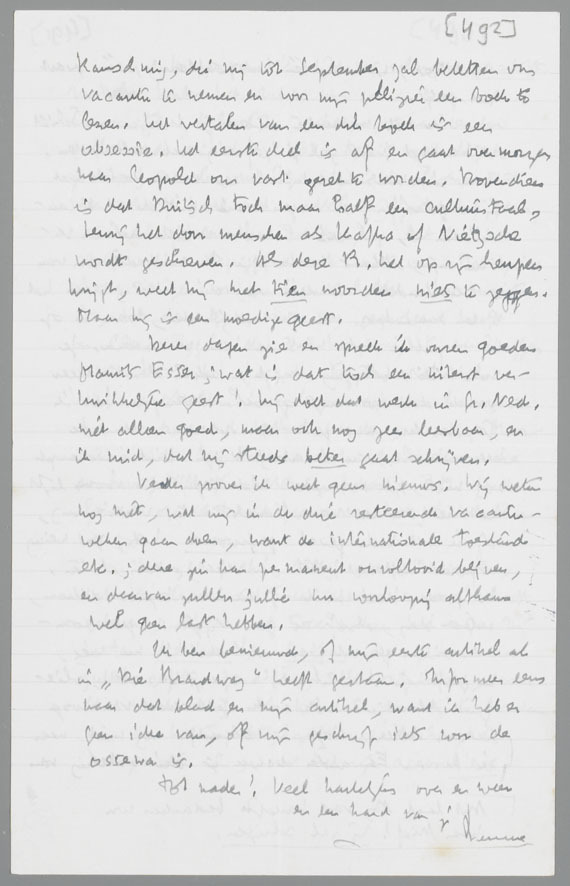 [492]
Rauschning, die mij tot September zal beletten om
vacantie te nemen en voor mijn plezier een boek te
lezen. Het vertalen van een dik boek is een
obsessie. Het eerste deel is af en gaat overmorgen
naar Leopold om vast gezet te worden. Bovendien
is dat Duitsch toch maar half een cultuurtaal,
tenzij het door menschen als Kafka of Nietzsche
wordt geschreven. Als deze R. het op zijn heupen
krijgt, weet hij met tien woorden niets te zeggen.
Maar hij is een moedige geest.
Dezer dagen zie en spreek ik onzen goeden
Maurits Esser; wat is dat toch een uiterst ver-
kwikkelijke geest! Hij doet dat werk in Gr. Ned.
niet alleen goed, maar ook nog zeer leesbaar, en
ik vind, dat hij steeds beter gaat schrijven.
Verder zoover ik weet geen nieuws. Wij weten
nog niet, wat wij in de drie resteerende vacantie-
weken gaan doen, want de internationale toestand
etc.; deze zin kan permanent onvoltooid blijven,
en daarvan zullen jullie in voorloopig althans
wel geen last hebben.
Ik ben benieuwd, of mijn eerste artikel al
in „Die Brandwag" heeft gestaan. Informeer eens
naar dat blad en mijn artikel, want ik heb er
geen idee van, of mijn geschrijf iets voor de
ossewa is.
Tot nader! Veel hartelijks over en weer
en een hand van je
Menno